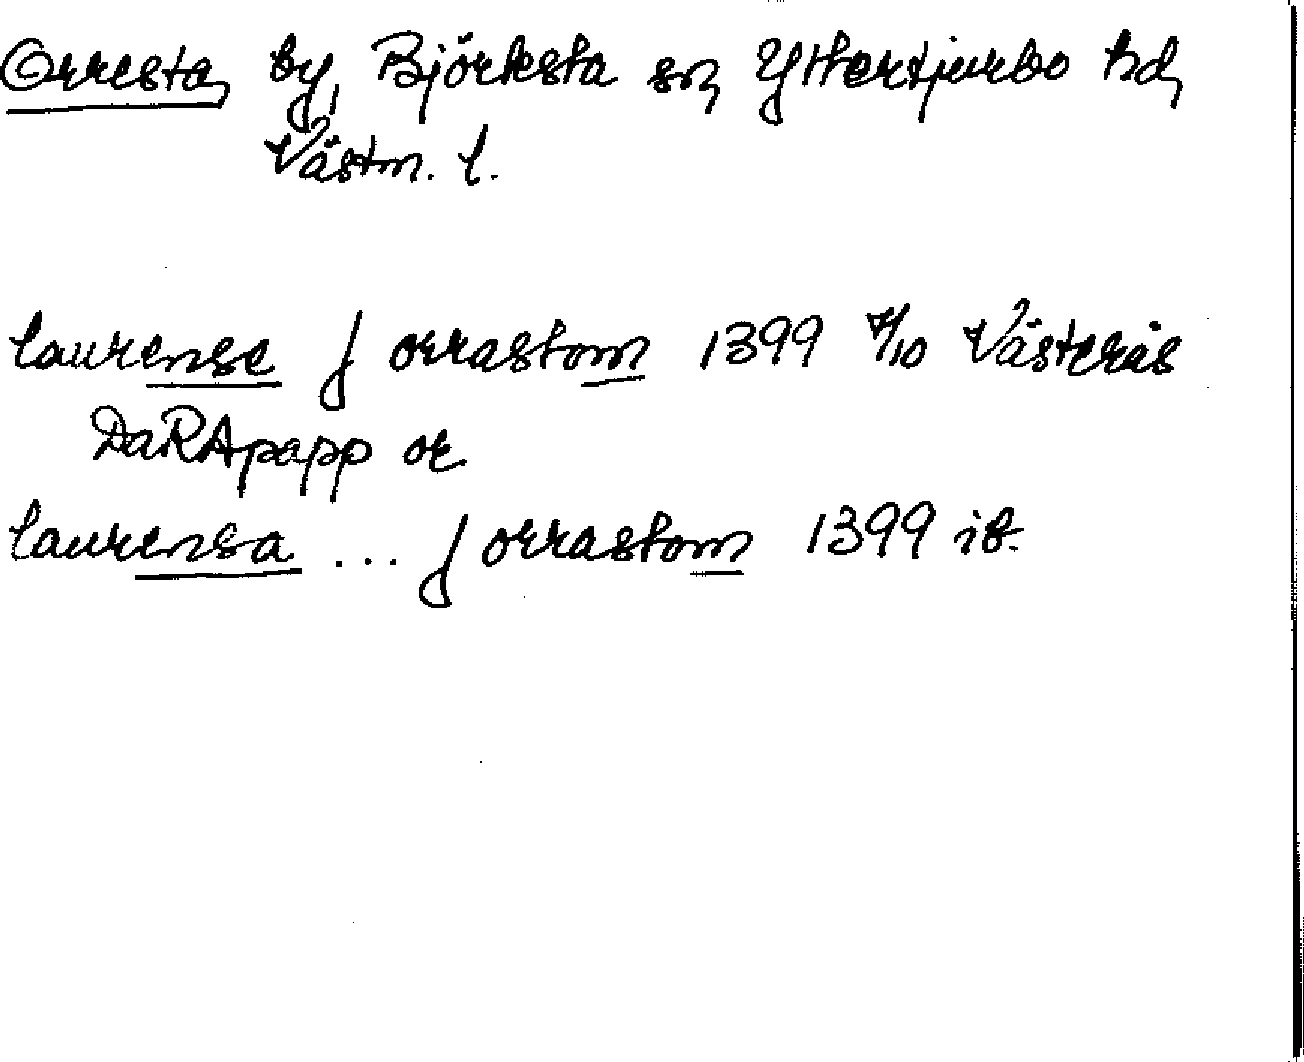 Orresta, by, Björksta sn, Yttertjurbo hd,
Västm. l.
laurense j orrastom 1399 7/10 Västerås
DaRApapp or
laurensa ... j orrastom 1399 ib.